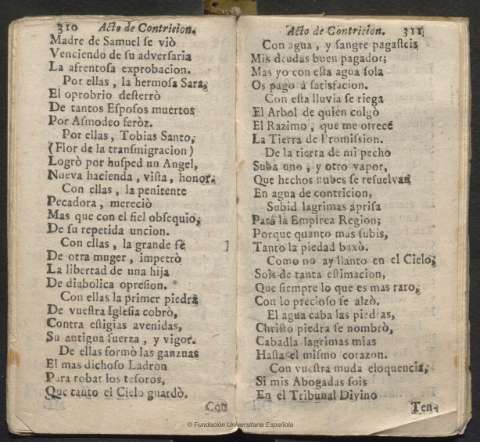 310 Acto de Contricion.
Madre de Samuel se viò
Venciendo de su adversaria
La afrentosa exprobacion.
Por ellas, la hermosa Sara,
El oprobrio desterrò
De tantos Esposos muertos
Por Asmodeo feròz.
Por ellas, Tobias Santo,
(Flor de la transmigracion)
Logrò por husped un Angel,
Nueva hacienda, vista, honor.
Con ellas, la penitente
Pecadora, mereciò
Mas que con el fiel obsequio,
De su repetida uncion.
Con ellas, la grande fè
De otra muger, impetrò
La libertad de una hija
De diabolica opresion.
Con ellas la primer piedra
De vuestra Iglesia cobrò,
Contra estigias avenidas,
Su antigua fuerza, y vigor.
De ellas formò las ganzuas
El mas dichoso Ladron
Para robar los tesoros,
Que tanto el Cielo guardò.
Con
Acto de Contricion. 311
Con agua, y sangre pagasteis
Mis deudas buen pagador;
Mas yo con esta agua sola
Os pago à satisfacion.
Con esta lluvia se riega
El Arbol de quien colgò
El Razimo, que me ofrecè
La Tierra de Promission.
De la tierra de mi pecho
Suba uno, y otro vapor,
Que hechos nubes se resuelvan
En agua de contricion.
Subid lagrimas aprisa
Para la Empirea Region;
Porque quanto mas subis,
Tanto la piedad baxò.
Como no ay llanto en el Cielo,
Sois de tanta estimacion,
Que siempre lo que es mas raro,
Con lo precioso se alzò.
El agua caba las piedras,
Christo piedra se nombrò,
Cabadla lagrimas mias
Hasta el mismo corazon.
Con vuestra muda eloquencia,
Si mis Abogadas sois
En el Tribunal Divino
Ten-
© Fundación Universitaria Española